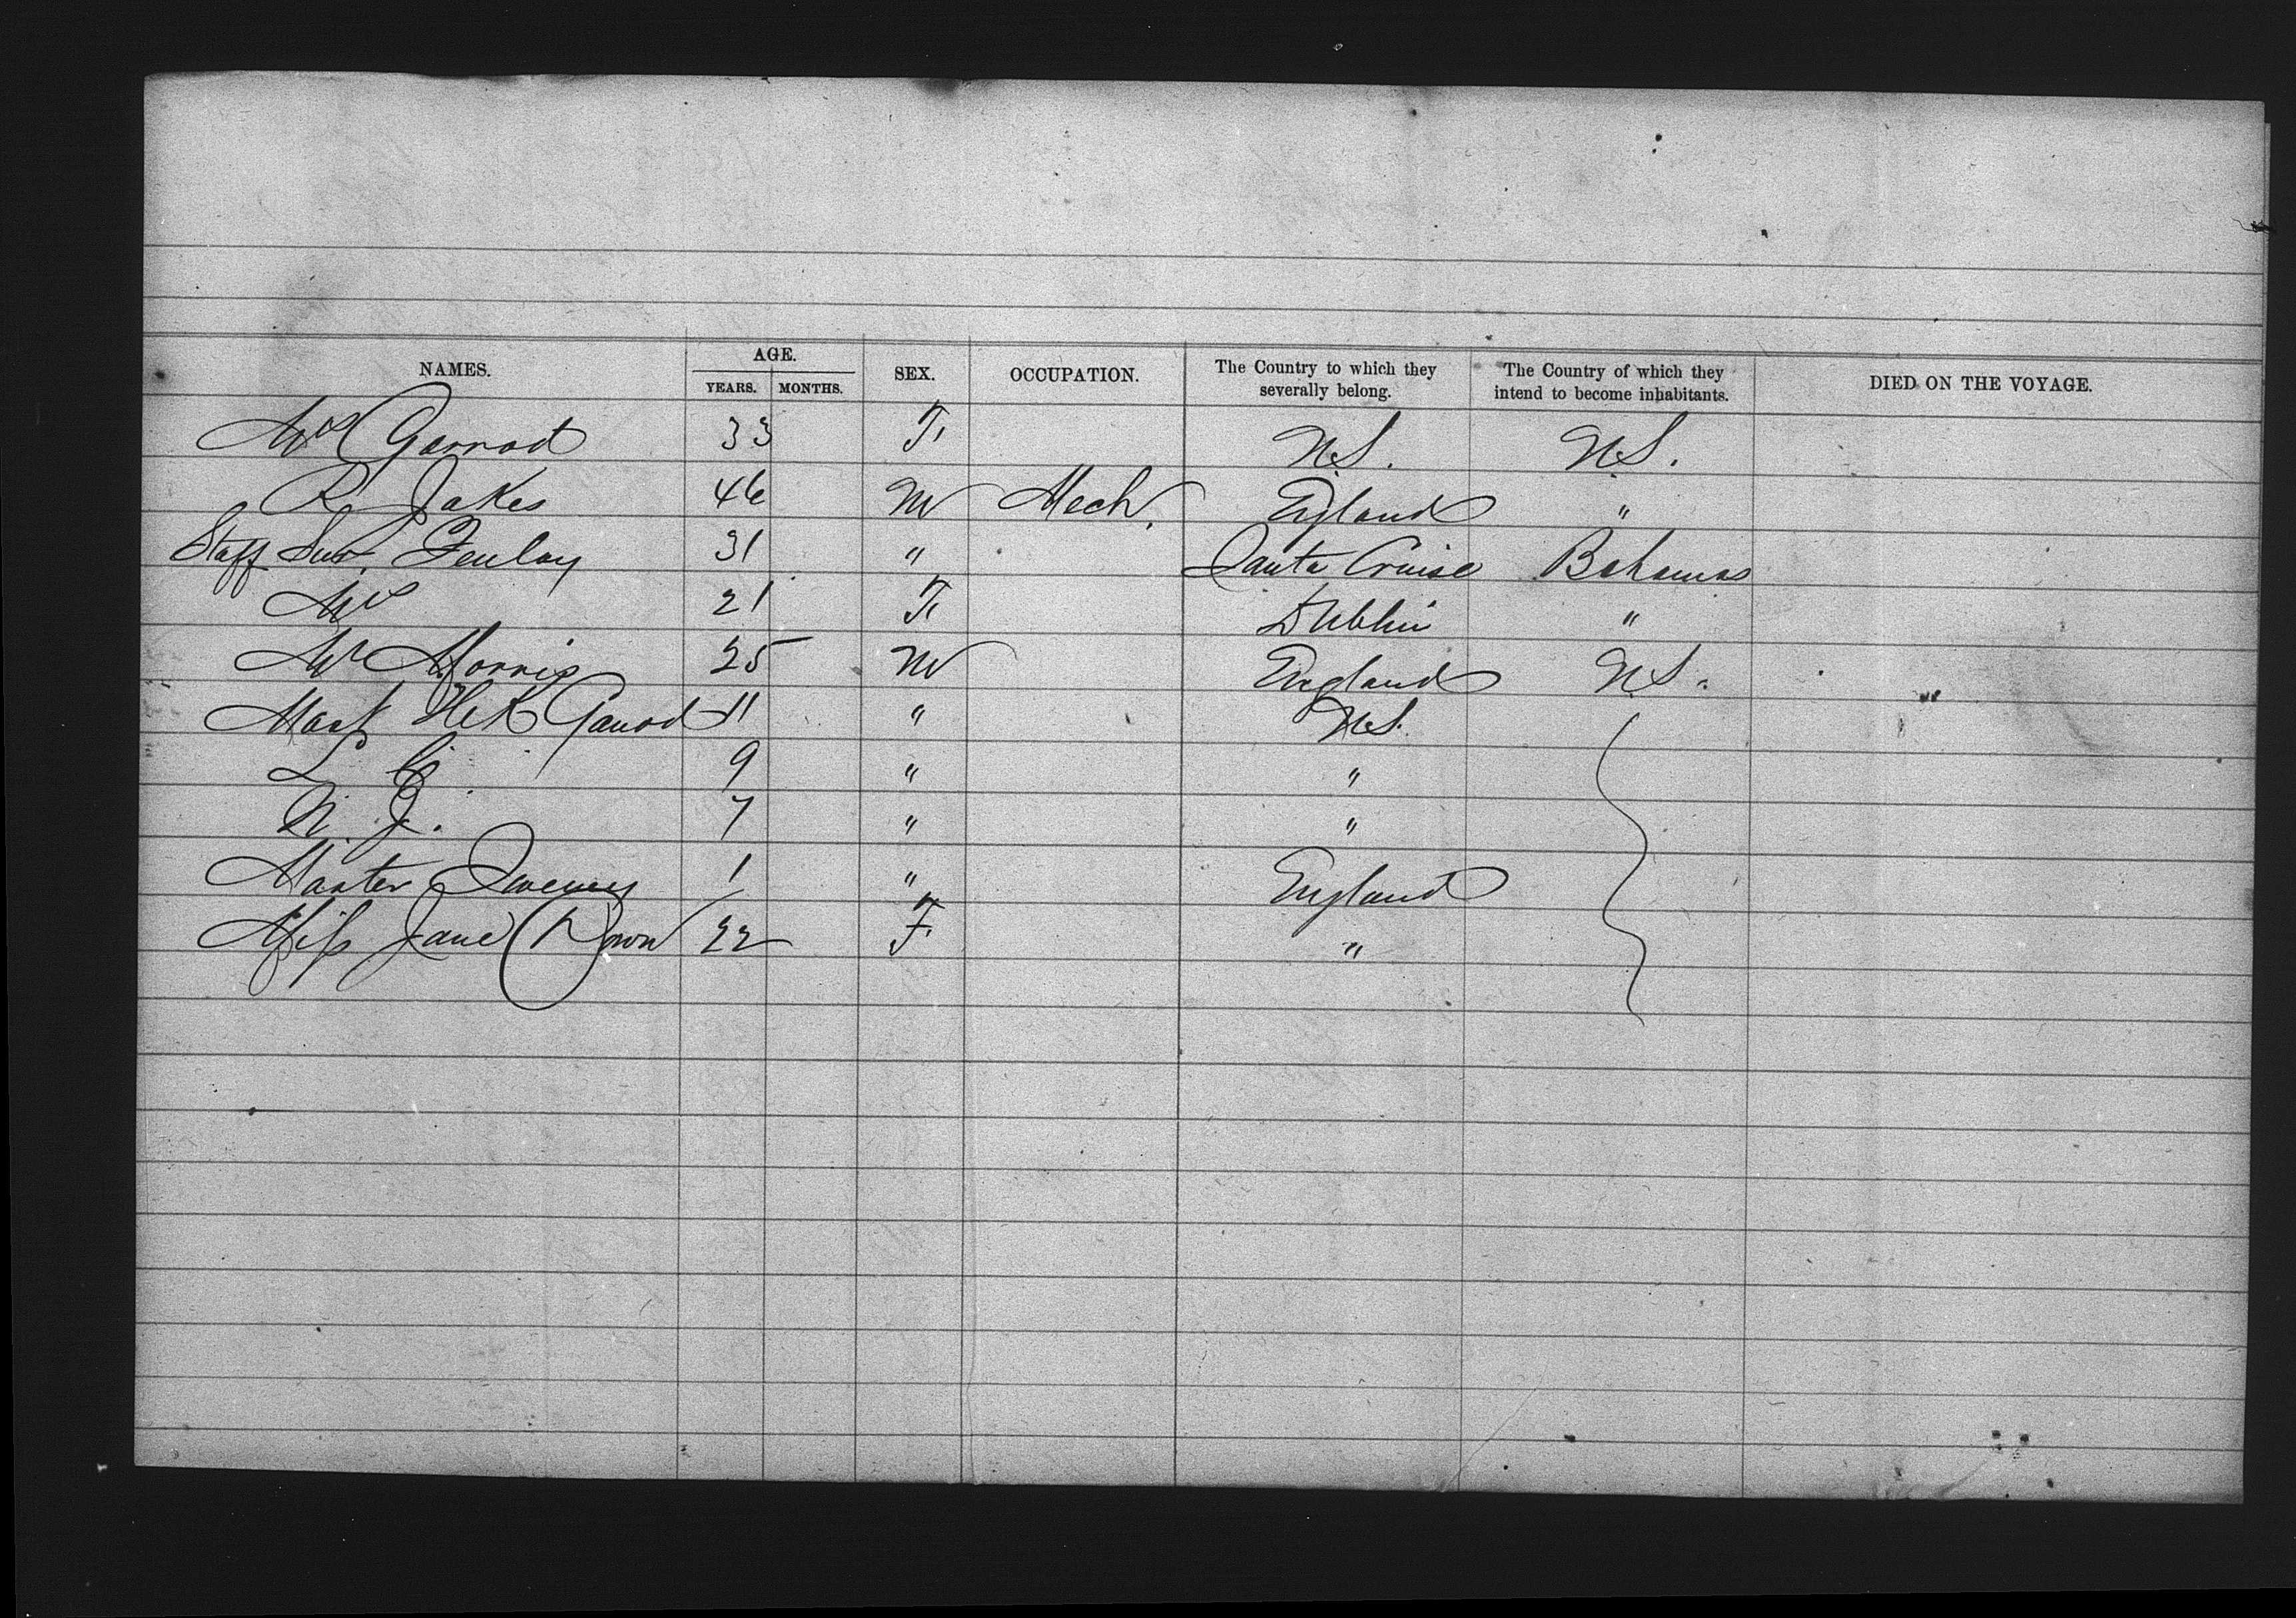 NAMES. AGE. YEARS. MONTHS. SEX. OCCUPATION. The Country to which they severally belong. The Country of which they intend to become inhabitants. DIED ON THE VOYAGE.
Mrs Garrod 33 F. U.S. U.S.
R. Jakes 46 M Mech. England "
Staff Sur. Fenlay 31 " Santa Cruise Bahamas
Mrs 21 F. Dublin "
Mr Morris 25 M England U.S.
Mast H K Garrod 11 " U.S.
9 " "
7 " "
Master 1 " England
Miss Jane 22 F. "